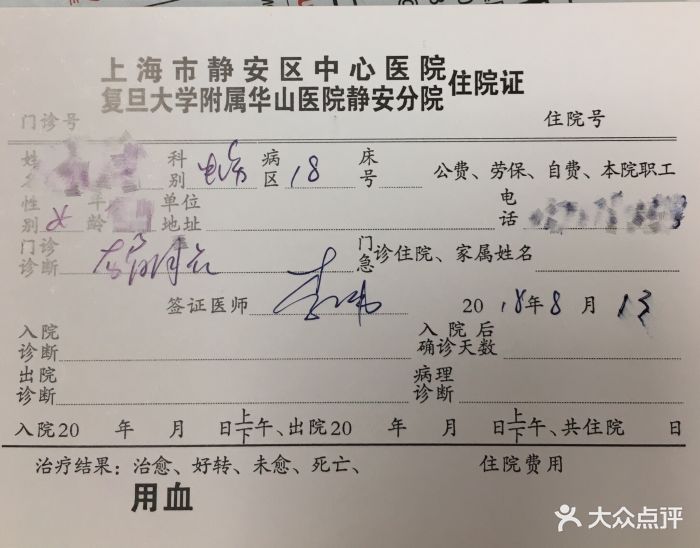 上海市静安区中心医院
复旦大学附属华山医院静安分院 住院证
门诊号 住院号
姓名 科别 病区 18 床号 公费、劳保、自费、本院职工
性别 女 年龄 单位地址 电话
门诊诊断 门急诊住院、家属姓名
签证医师 2018年8月13
入院诊断 入院后确诊天数
出院诊断 病理诊断
入院20 年 月 日上下午、出院20 年 月 日上下午、共住院 日
治疗结果：治愈、好转、未愈、死亡、 住院费用
用血
大众点评